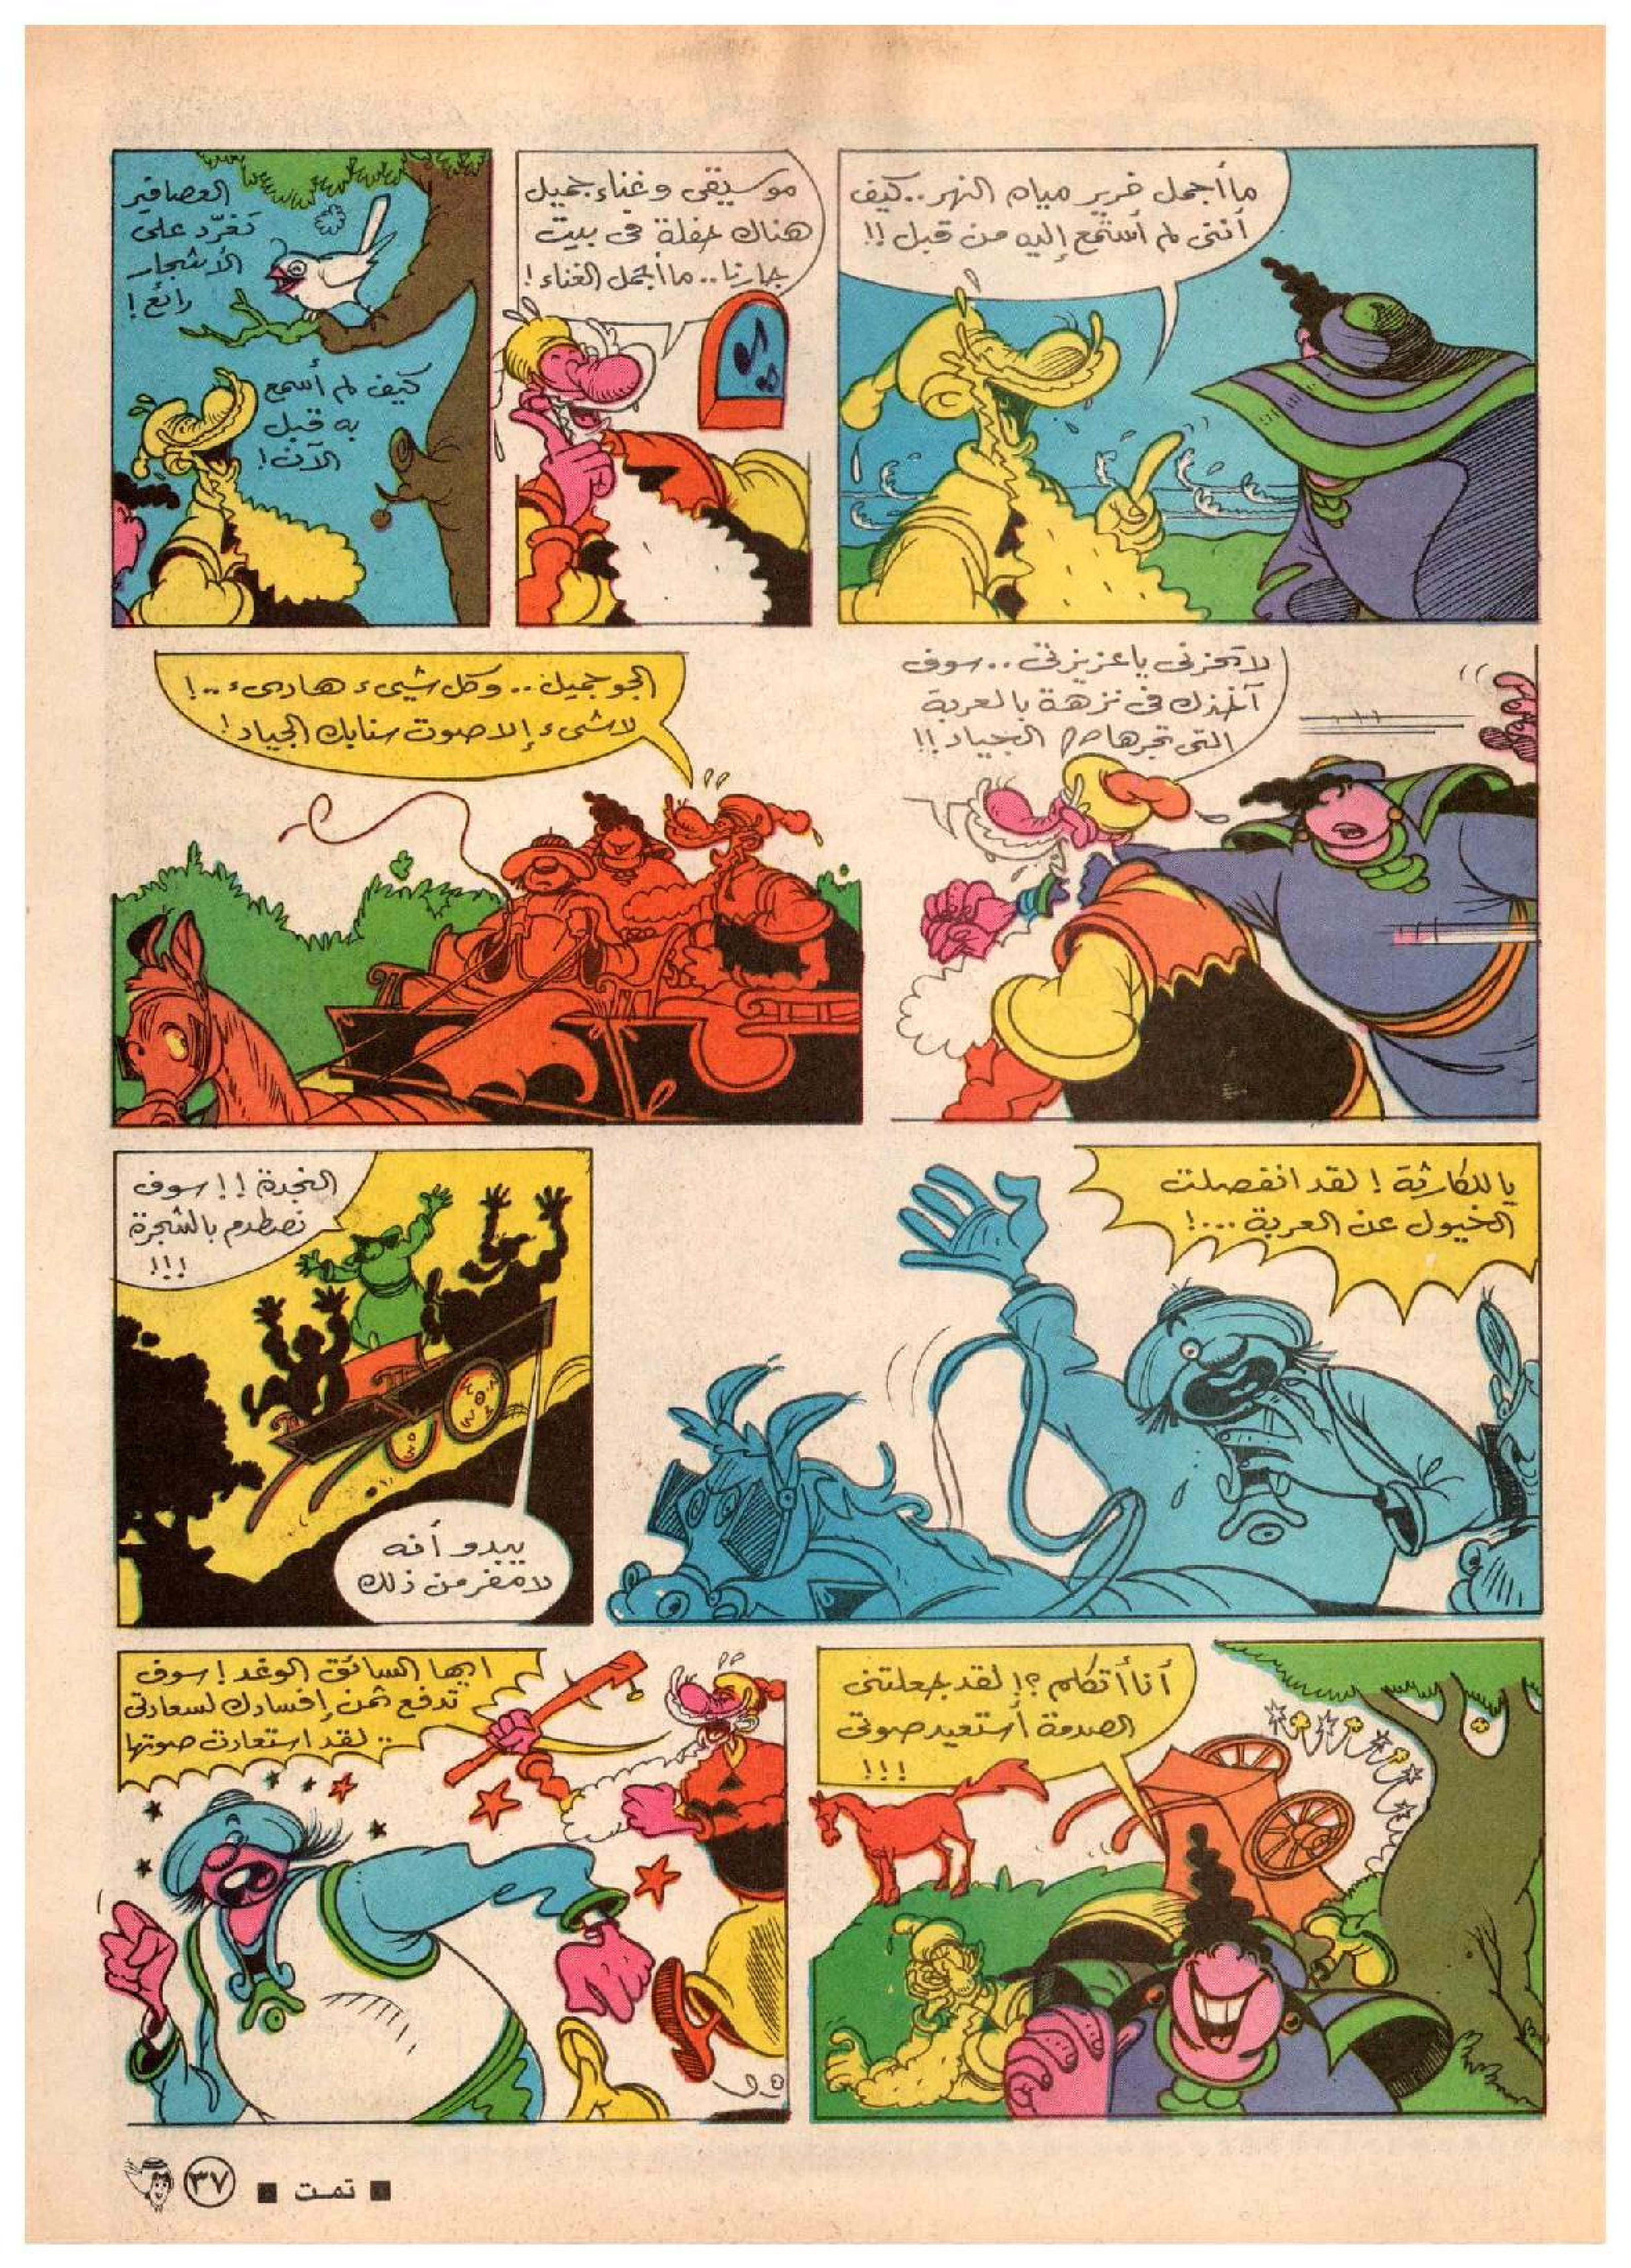 ما أجمل خرير مياه النهر.. كيف
أننى لم أستمع إليه من قبل !!
موسيقى وغناء جميل
هناك حفلة فى بيت
جارنا.. ما أجمل الغناء !
العصافير
تغرّد على
الأشجار
رائع !
كيف لم أسمع
به قبل
الآن !
لا تحزنى يا عزيزتى.. سوف
آخذك فى نزهة بالعربة
التى تجرها الجياد !!
الجو جميل.. وكل شيىء هادىء..!
لاشىء إلا صوت سنابك الجياد !
يا للكارثة ! لقد انفصلت
الخيول عن العربة ...!
النجدة !! سوف
نصطدم بالشجرة
!!!
يبدو أنه
لامفر من ذلك
أنا أتكلم ؟! لقد جعلتنى
الصدمة أستعيد صوتى
!!!
ايها السائق الوغد ! سوف
تدفع ثمن إفسادك لسعادتى
.. لقد استعادت صوتها
■ تمت ■ ٣٧